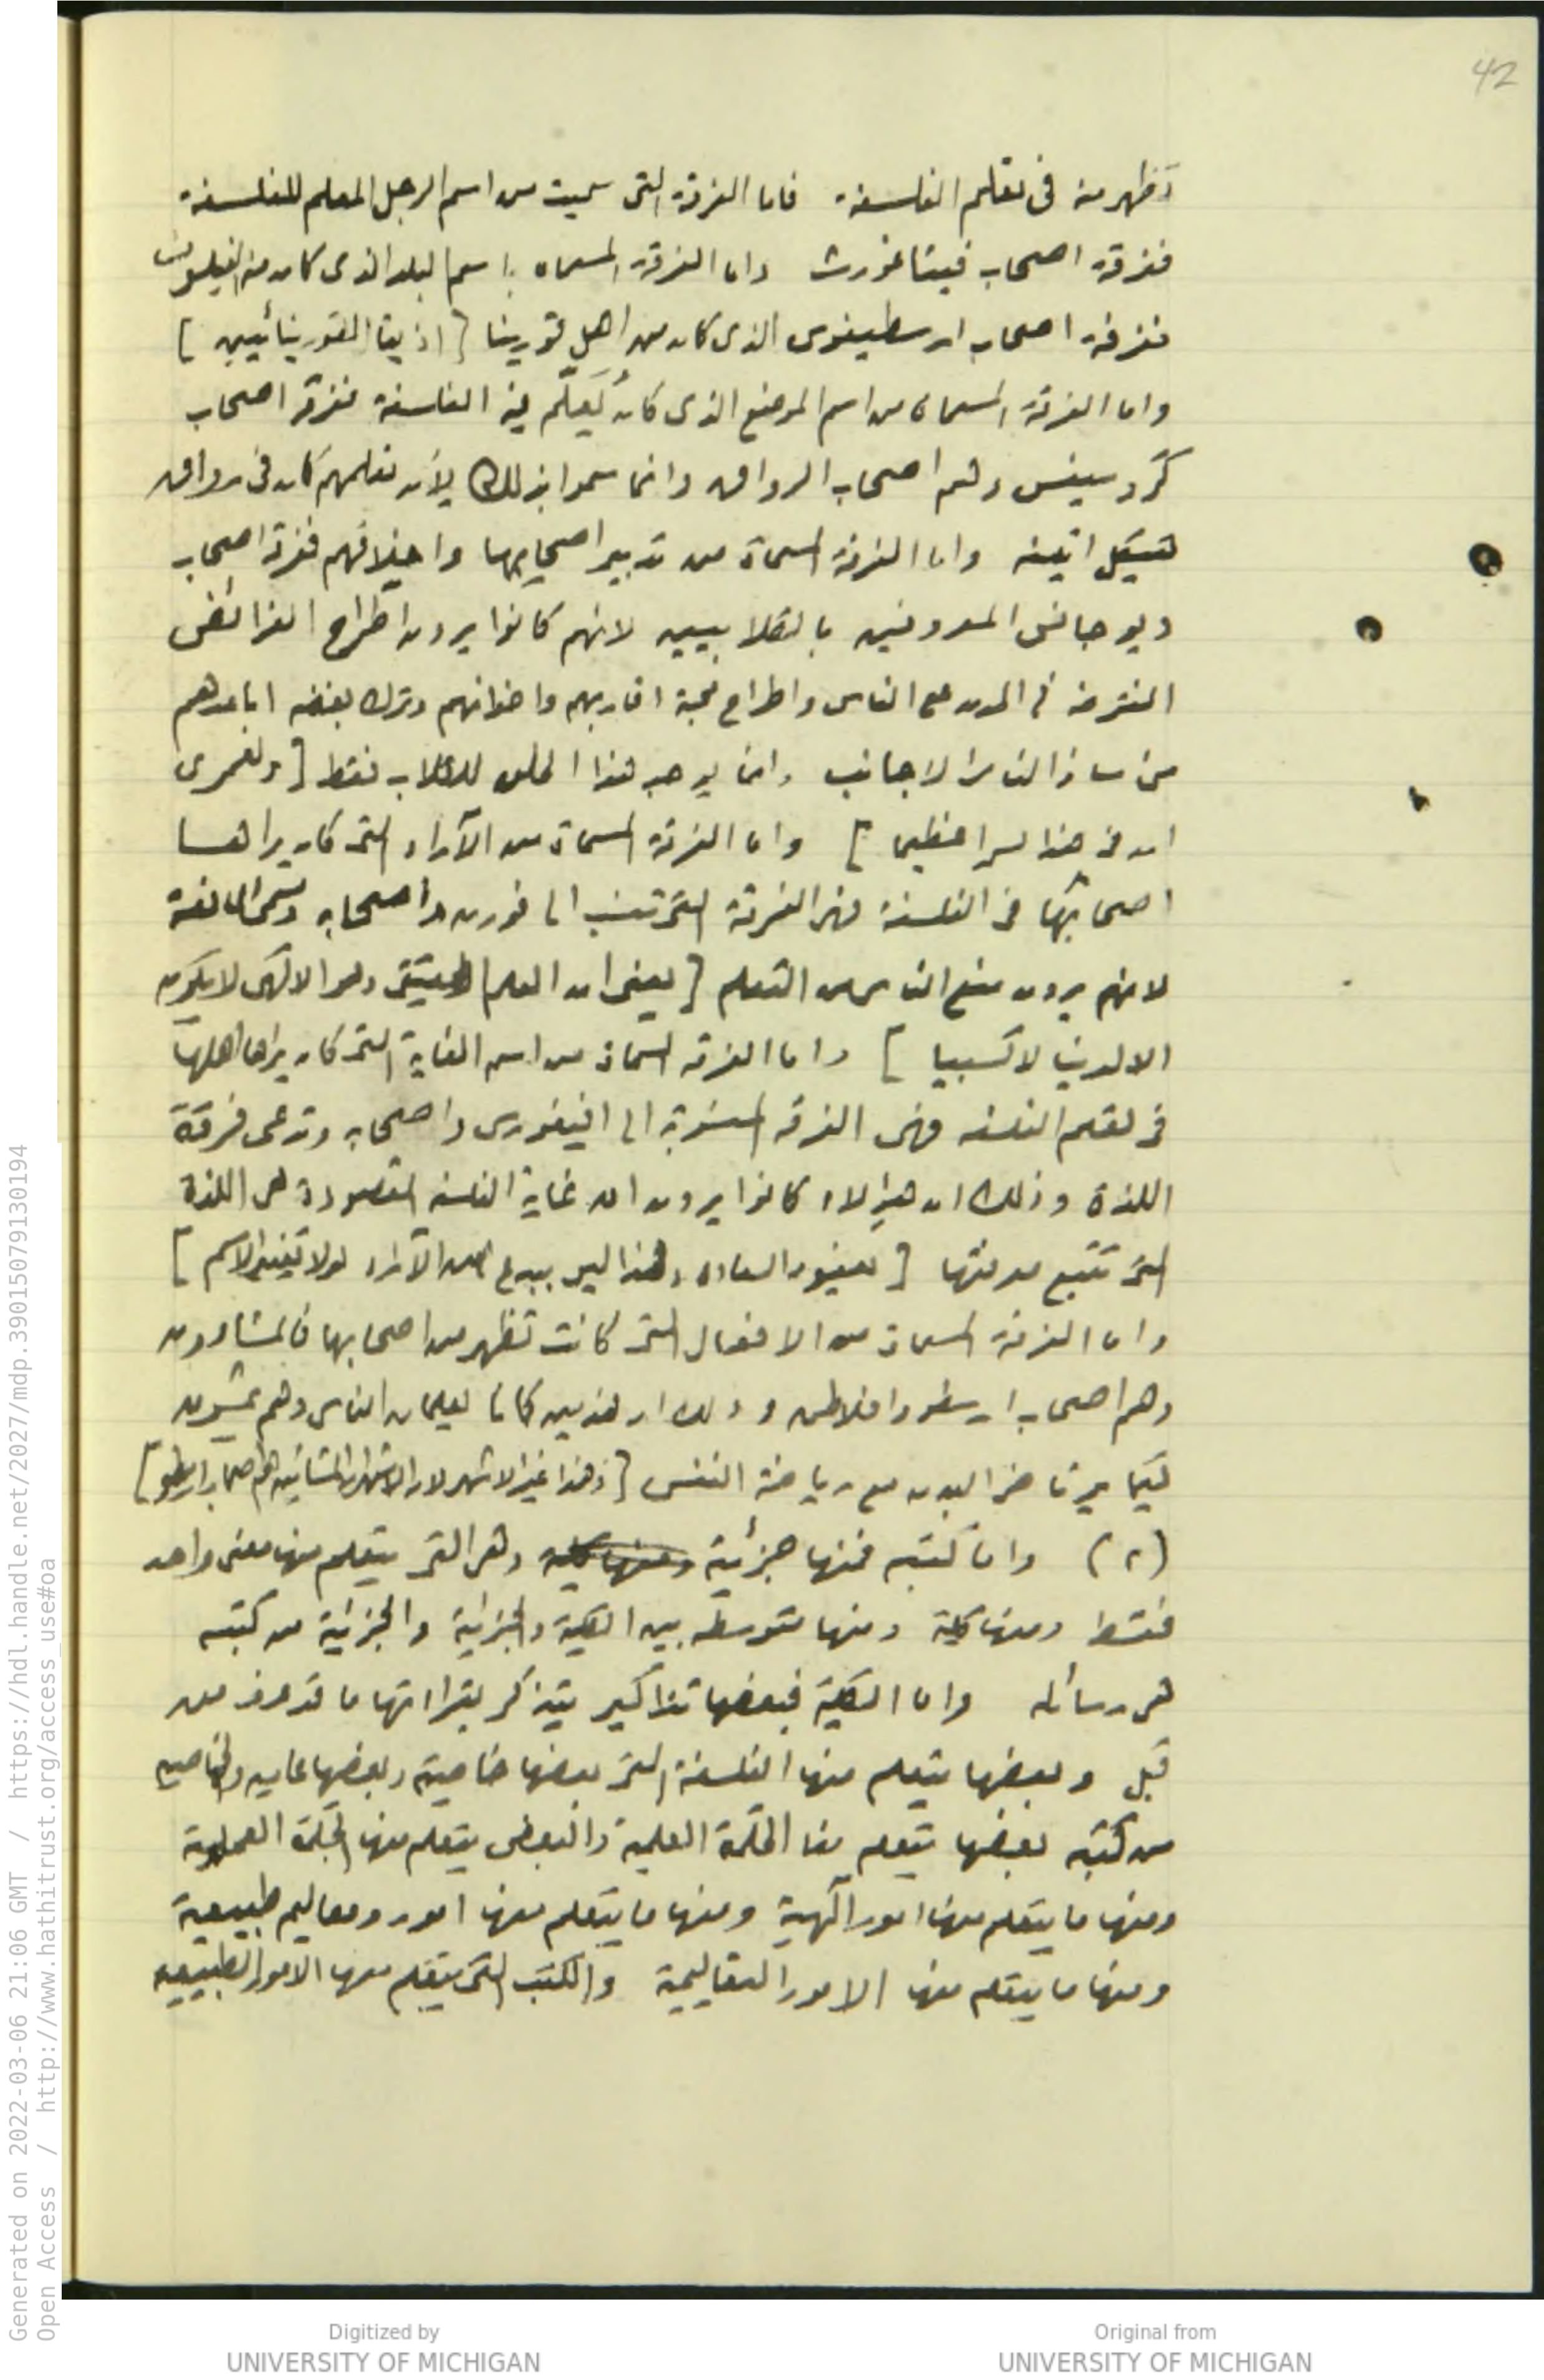 42
تظهر منه فى تعلم الفلسفة فاما الفرقة التى سميت من اسم الرجل المعلم للفلسفة
ففرقة اصحاب فيثاغورث واما الفرقة المسماه باسم البلد الذى كان منه الفيلسوف
ففرقة اصحاب ارسطيفوس الذى كان من اهل قورينا [
واما الفرقة المسماه من اسم الموضع الذى كان يُعَلَّم فيه الفلسفة ففرقة اصحاب
كروسيفس وهم اصحاب الرواق وانما سموا بذلك لأن تعلمهم كان فى رواق
هيكل اثينه واما الفرقة المسماة من تدبير اصحابها واخلاقهم ففرقة اصحاب
ديوجانس المعروفين بالكلابيين لانهم كانوا يرون اطراح الفرائض
المفترضة فى المدن على الناس واطراح محبة اقاربهم واخوانهم وترك بغضه اباعدهم
من سائر الناس الاجانب وانما يوجد هذا الخلق للكلاب فقط [ ولعمرى
ان فى هذا لسرا عظيما ] واما الفرقة المسماة من الآراء التى كان يراها
اصحابها فى الفلسفة فهى الفرقة التى تنسب الى فورن واصحابه وتسمى المانعة
لانهم يرون منع الناس من التعلم [ يعنى ان العلم الحقيقى وهو الالهى لا يكون
الا لدنيا لا كسبيا ] واما الفرقه المسماة من اسم الغاية التى كان يراها اهلها
فى تعلم الفلسفه فهى الفرقه المنسوبة الى افيغورس واصحابه وتدعى فرقة
اللذة وذلك ان هؤلاء كانوا يرون ان غاية الفلسفه المقصودة هى اللذة
التى تتبع معرفتها [ يعنون السعاده وهذا ليس ببدع من الآراء لولا تغيير الاسم ]
واما الفرقة المسماة من الافعال التى كانت تظهر من اصحابها فالمشاؤون
وهم اصحاب ارسطو وافلاطن وذلك ان هذين كانا يعلمان الناس وهم يمشون
كيما يرتاض البدن مع رياضة النفس [ وهذا غير الاشهر لان الاشهر ان المشائين هم اصحاب ارسطو ]
(٨) واما كتبه فمنها جزئية ومنها كلية وهى التى يتعلم منها معنى واحد
فقط ومنها كلية ومنها متوسطه بين الكلية والجزئية والجزئية من كتبه
هى رسائله واما الكلية فبعضها تذاكير يتذكر بقراءتها ما قد عرف من
قبل وبعضها يتعلم منها الفلسفة التى بعضها خاصية وبعضها عاميه والخاصيه
من كتبه بعضها يتعلم منها الحكمة العلمية والبعض يتعلم منها الحكمة العملية
ومنها ما يتعلم منها امور الٓهية ومنها ما يتعلم منها امور ومعاليم طبيعية
ومنها ما يتعلم منها الامور التعاليمية والكتب التى يتعلم منها الامور الطبيعيه
Generated on 2022-03-06 21:06 GMT / https://hdl.handle.net/2027/mdp.39015079130194
Open Access / http://www.hathitrust.org/access_use#oa
Digitized by
UNIVERSITY OF MICHIGAN
Original from
UNIVERSITY OF MICHIGAN